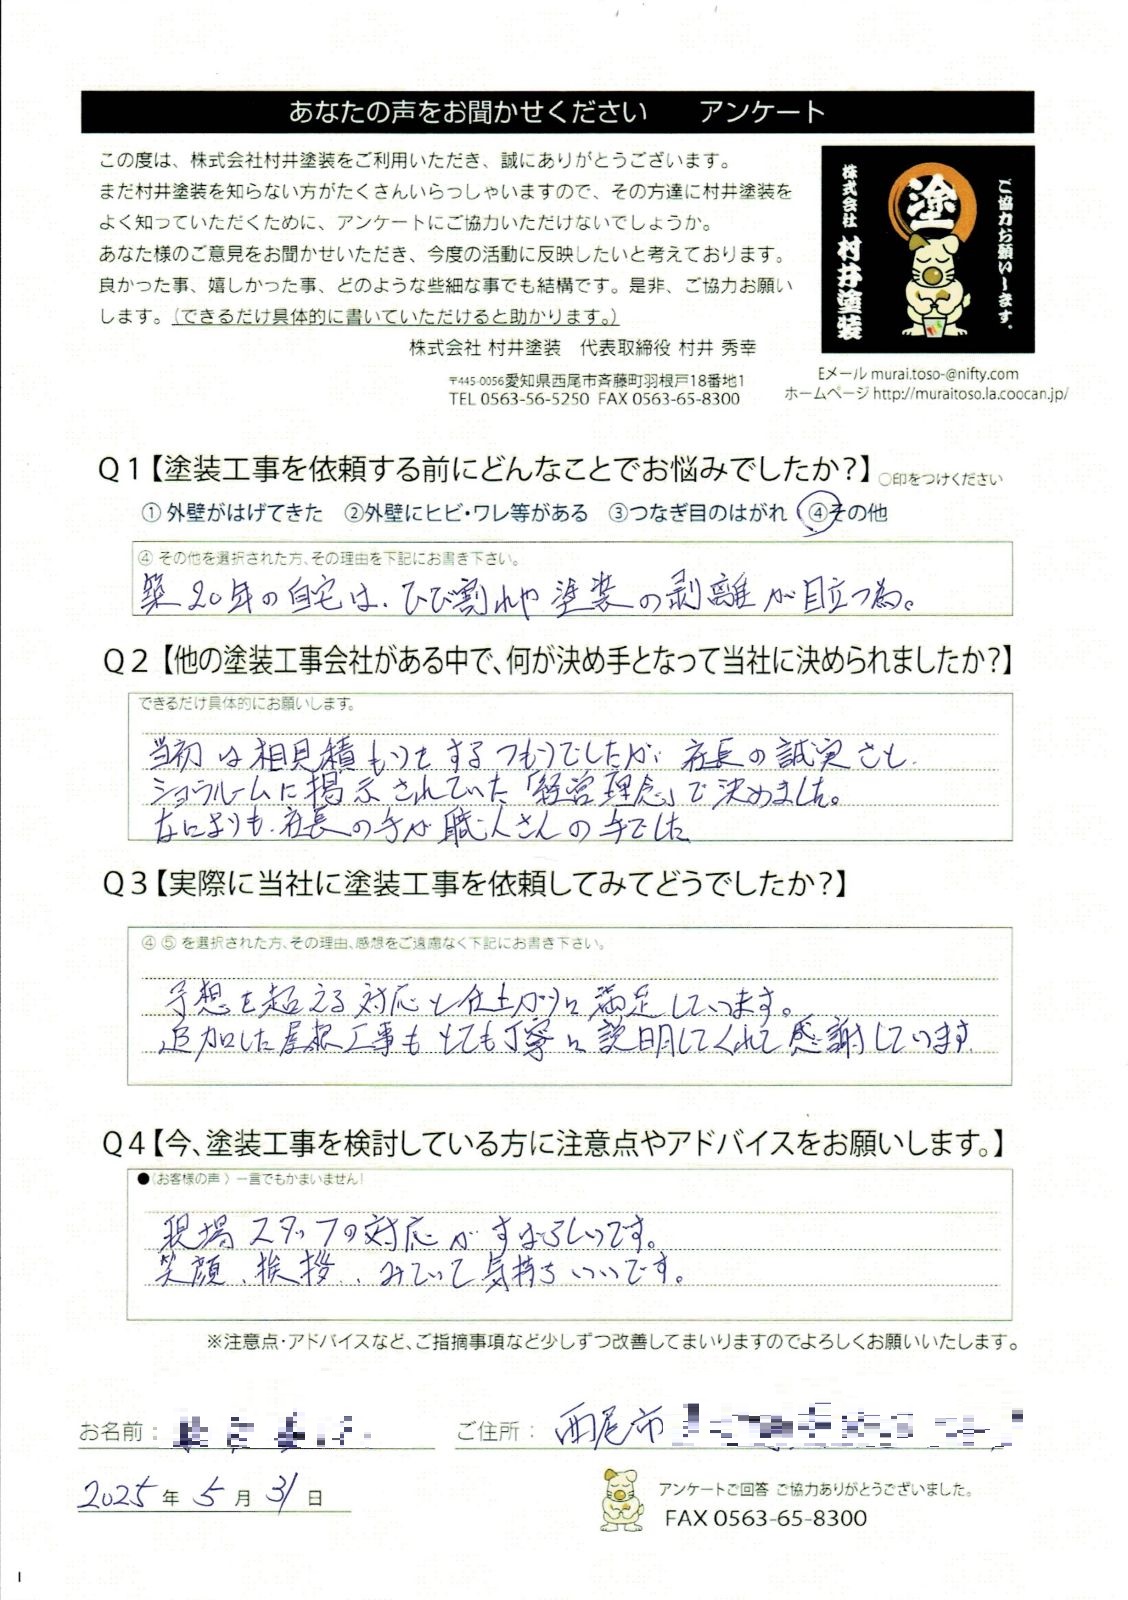 あなたの声をお聞かせください　　アンケート
この度は、株式会社村井塗装をご利用いただき、誠にありがとうございます。
まだ村井塗装を知らない方がたくさんいらっしゃいますので、その方達に村井塗装を
よく知っていただくために、アンケートにご協力いただけないでしょうか。
あなた様のご意見をお聞かせいただき、今度の活動に反映したいと考えております。
良かった事、嬉しかった事、どのような些細な事でも結構です。是非、ご協力お願い
します。（できるだけ具体的に書いていただけると助かります。）
株式会社 村井塗装　代表取締役 村井 秀幸
〒445-0056愛知県西尾市斉藤町羽根戸18番地1
TEL 0563-56-5250 FAX 0563-65-8300
株式会社 村井塗装
塗
ご協力お願い〜ます。
Eメール murai.toso-@nifty.com
ホームページ http://muraitoso.la.coocan.jp/
Q1【塗装工事を依頼する前にどんなことでお悩みでしたか?】 ○印をつけください
① 外壁がはげてきた　②外壁にヒビ・ワレ等がある　③つなぎ目のはがれ　④その他
④ その他を選択された方、その理由を下記にお書き下さい。
築20年の自宅は、ひび割れや塗装の剥離が目立つ為。
Q2【他の塗装工事会社がある中で、何が決め手となって当社に決められましたか?】
できるだけ具体的にお願いします。
当初は相見積もりをするつもりでしたが 社長の誠実さと、
ショウルームに掲示されていた「経営理念」で決めました。
なによりも、社長の手が職人さんの手でした
Q3【実際に当社に塗装工事を依頼してみてどうでしたか?】
④ ⑤ を選択された方、その理由、感想をご遠慮なく下記にお書き下さい。
予想を超える対応と仕上がりに満足しています。
追加した屋根工事もとても丁寧に説明してくれて感謝しています。
Q4【今、塗装工事を検討している方に注意点やアドバイスをお願いします。】
●（お客様の声）一言でもかまいません!
現場スタッフの対応がすばらしいです。
笑顔、挨拶、みていて気持ちいいです。
※注意点・アドバイスなど、ご指摘事項など少しずつ改善してまいりますのでよろしくお願いいたします。
お名前：
ご住所： 西尾市
2025 年 5 月 31 日
アンケートご回答 ご協力ありがとうございました。
FAX 0563-65-8300
1